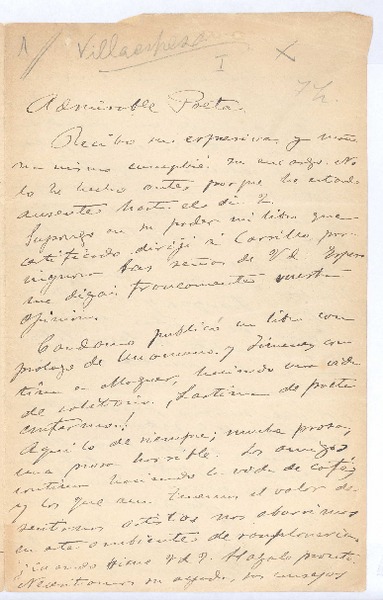 1
Villaespesa
I
X
Admirable Poeta.
Recibo su expresiva y
mismo cumpliré su encargo. No
lo he hecho antes porque he estado
ausente hasta el día 2.
Supongo en su poder mi libro que
certificado dirigí a Carrillo, por
las señas de Vd. Espero
me digais francamente vuestra
opinión.
Candamo publicó un libro con
prologo de Unamuno. y Jimenez con-
tinua en Moguer, haciendo una vida
de solitario. ¡Lastima de poeta
enfermo!
Aquí lo de siempre; mucha prosa,
una prosa horrible. Los amigos
continúan haciendo la vida de café,
y los que aun tenemos el valor de
sentirnos artistas nos aburrimos
en este ambiente de
¿Cuando viene Vd? Hágalo pronto.
Necesitamos su ayuda, sus consejos